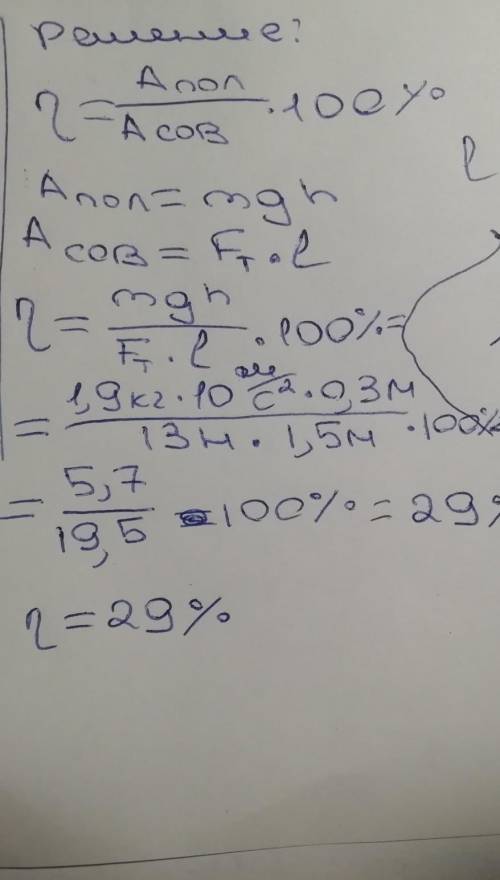 Решение:
η = Aпол / Aсов · 100%
l
Aпол = mgh
Aсов = Fт · l
η = mgh / Fт · l · 100% =
= 1,9кг · 10 м/с² · 0,3м / 13н · 1,5м · 100%
= 5,7 / 19,5 · 100% = 29%
η = 29%